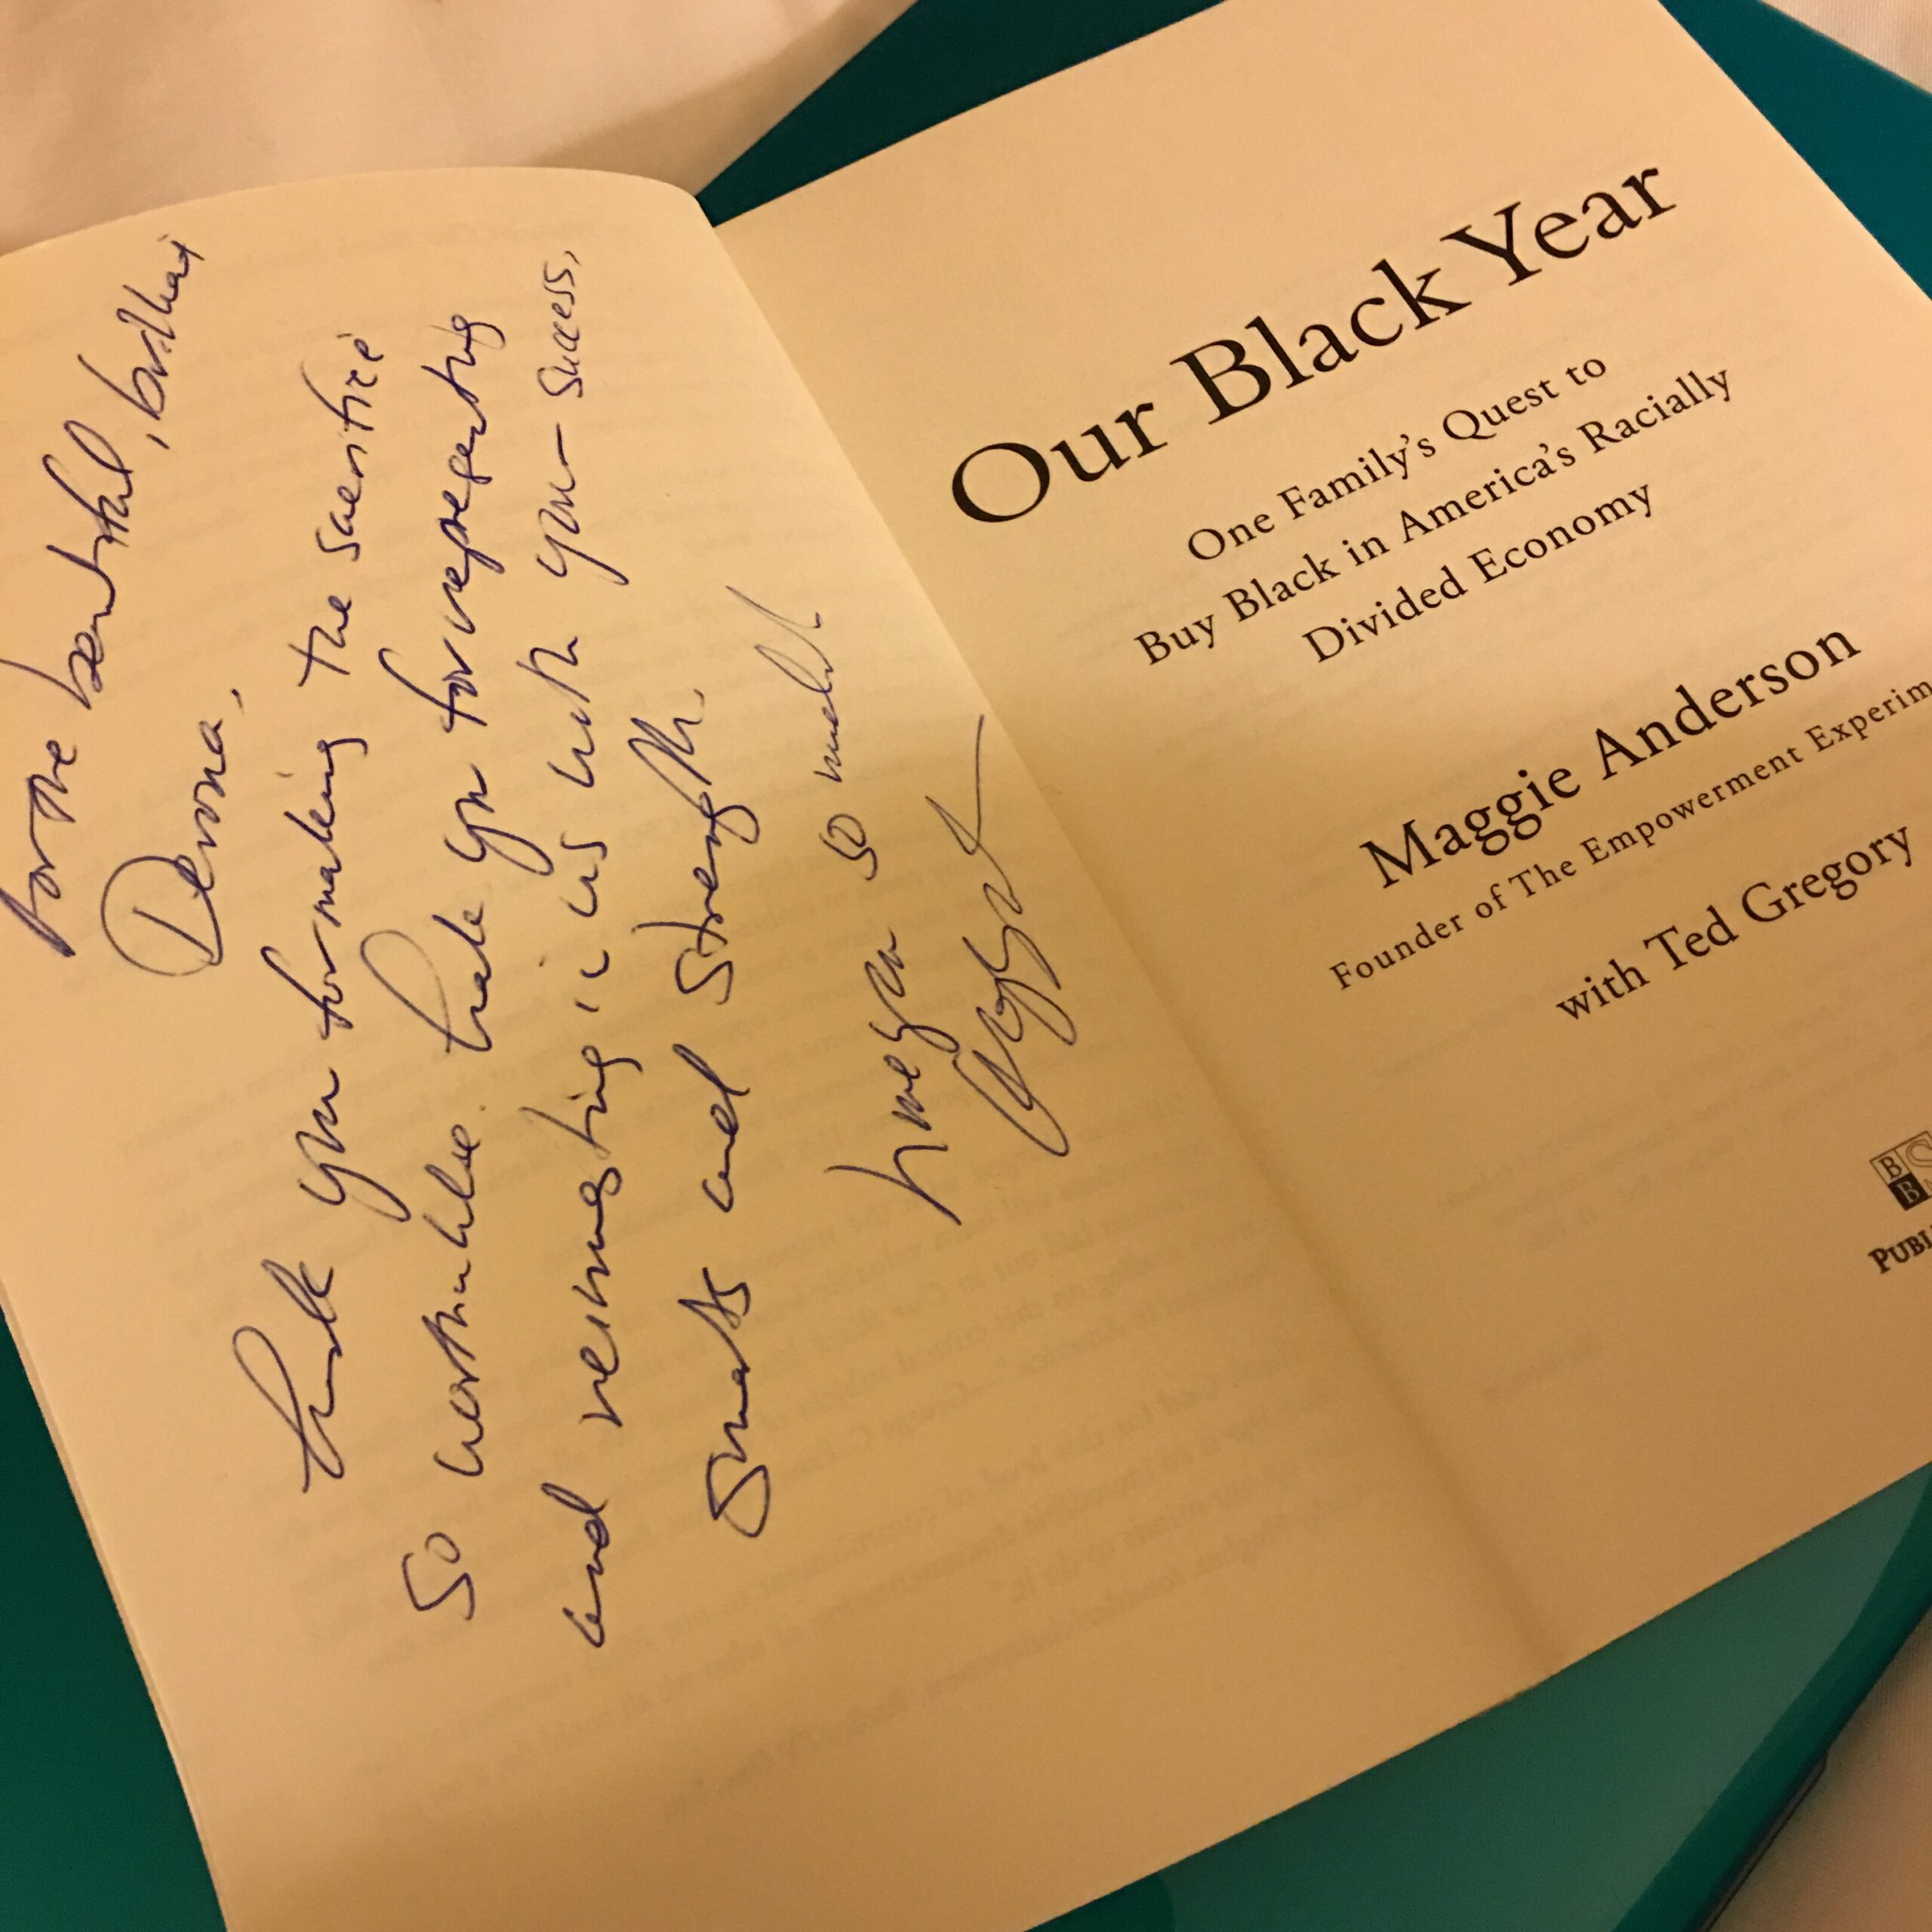 For the beautiful, brilliant
Devona,
Thank you for making the sacrifice
so worthwhile. Thank you for representing
and reinvesting in us with your success,
smarts and strength.
I need you so much
Our Black Year
One Family's Quest to
Buy Black in America's Racially
Divided Economy
Maggie Anderson
Founder of The Empowerment Experim
with Ted Gregory
B
B
PUBL